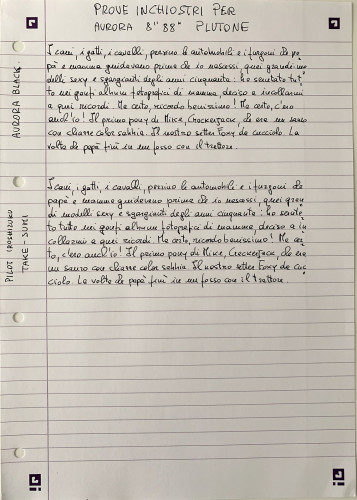 PROVE INCHIOSTRI PER
AURORA 8" 88" PLUTONE
AURORA BLACK
I cani, i gatti, i cavalli, persino le automobili e i furgoni che pa
pà e mamma guidavano prima che io nascessi, quei grandi mo
delli sexy e sgargianti degli anni cinquanta: ho sentito tut
to nei goffi album fotografici di mamma, deciso a incollarmi
a quei ricordi. Ma certo, ricordo benissimo! Ma certo, c'ero
anch'io! Il primo pony di Mike, Crackerjack, che era un sauro
con chiare color sabbia. Il nostro setter Foxy da cucciolo. La
volta che papà finì in un fosso con il trattore.
PILOT IROSHIZUKU
TAKE-SUMI
I cani, i gatti, i cavalli, persino le automobili e i furgoni che
papà e mamma guidavano prima che io nascessi, quei gran
di modelli sexy e sgargianti degli anni cinquanta: ho senti
to tutto nei goffi album fotografici di mamma, deciso a in
collarmi a quei ricordi. Ma certo, ricordo benissimo! Ma cer
to, c'ero anch'io! Il primo pony di Mike, Crackerjack, che era
un sauro con chiare color sabbia. Il nostro setter Foxy da cuc
ciolo. La volta che papà finì in un fosso con il trattore.